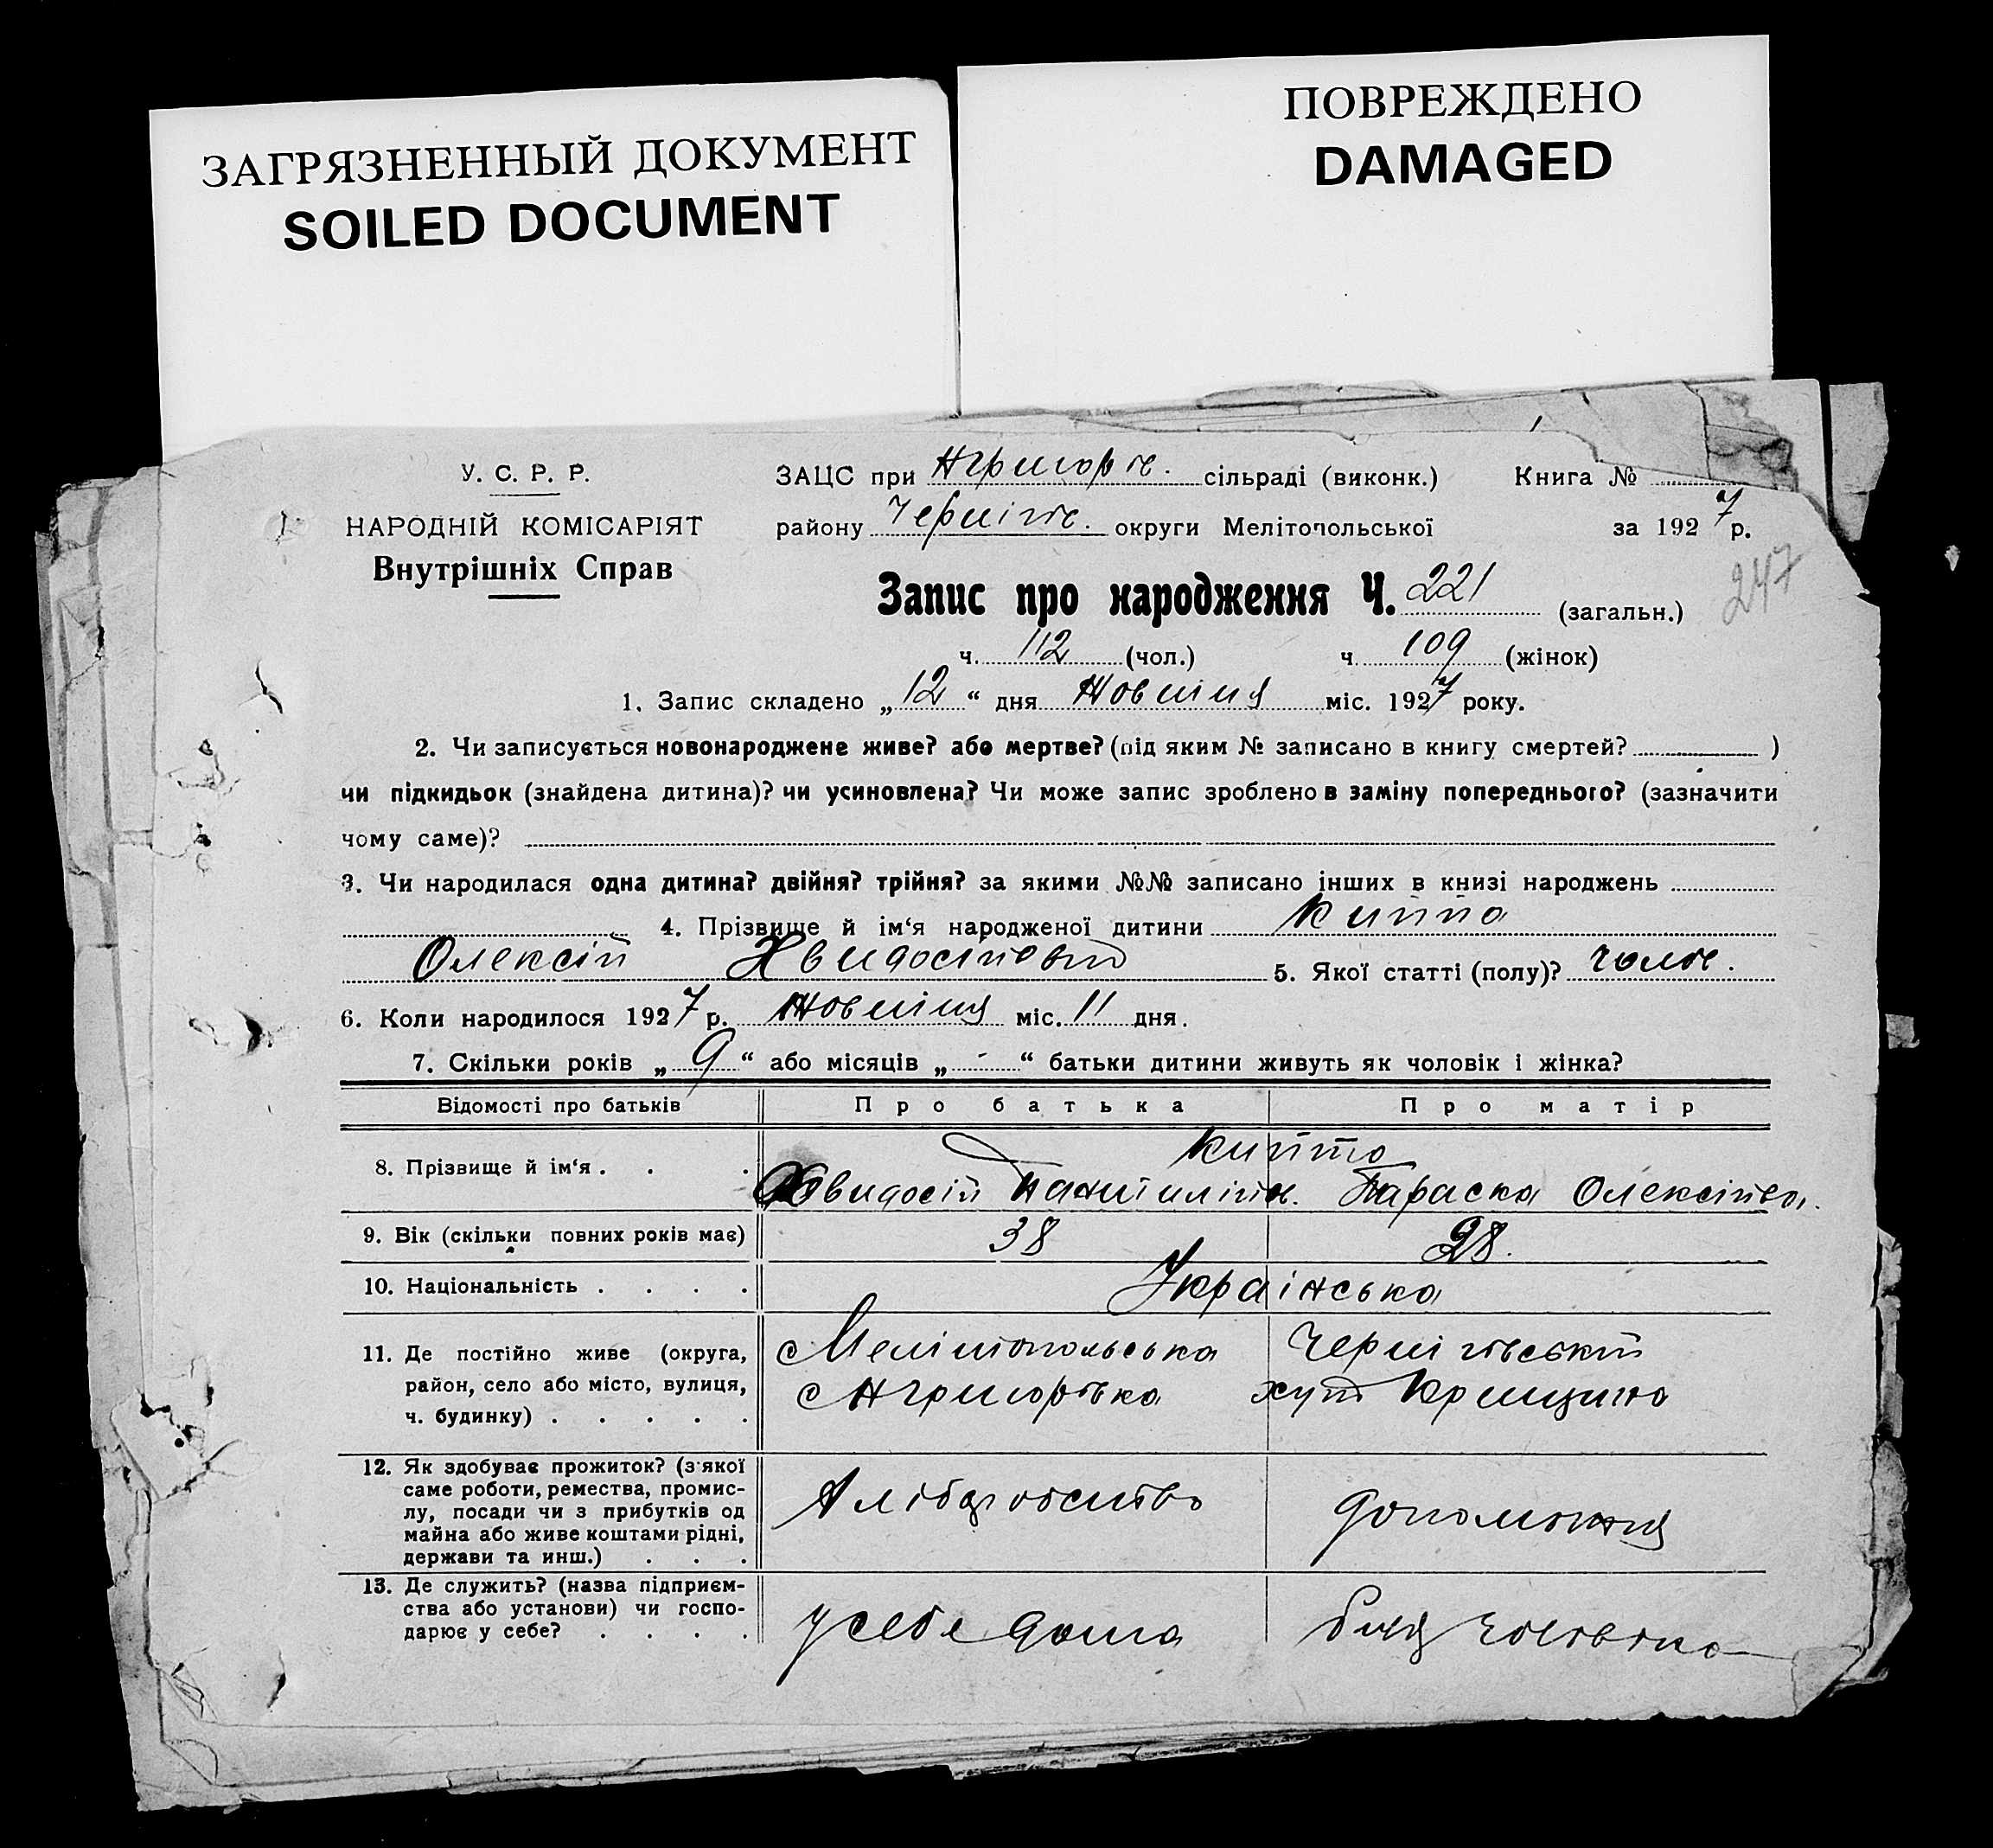 ЗАГРЯЗНЕННЫЙ ДОКУМЕНТ
SOILED DOCUMENT
ПОВРЕЖДЕНО
DAMAGED
У. С. Р. Р.
НАРОДНІЙ КОМІСАРІЯТ
Внутрішніх Справ
ЗАЦС при Нгригорів. сільраді (виконк.) Книга №
району Чернігів. округи Мелітопольської за 1927 р.
247
Запис про народження Ч. 221 (загальн.)
ч. 112 (чол.) ч. 109 (жінок)
1. Запис складено „12“ дня Жовтня міс. 1927 року.
2. Чи записується новонароджене живе? або мертве? (під яким № записано в книгу смертей? )
чи підкидьок (знайдена дитина)? чи усиновлена? Чи може запис зроблено в заміну попереднього? (зазначити
чому саме)?
3. Чи народилася одна дитина? двійня? трійня? за якими №№ записано інших в книзі народжень
4. Прізвище й ім‘я народженої дитини
Олексій Хвидосійович 5. Якої статті (полу)? чолов.
6. Коли народилося 1927 р. Жовтня міс. 11 дня.
7. Скільки років „9“ або місяців „-“ батьки дитини живуть як чоловік і жінка?
Відомості про батьків Про батька Про матір
8. Прізвище й ім‘я . . .
Хвидосій Пантилійм. Параска Олексійов.
9. Вік (скільки повних років має) 38 28.
10. Національність . . . . Українська
11. Де постійно живе (округа, Мелітопольська Чернігівський
район, село або місто, вулиця, с Нгригорівка хут
ч. будинку) . . . . .
12. Як здобуває прожиток? (з якої
саме роботи, ремества, промис-
лу, посади чи з прибутків од Хліборобство допомогня
майна або живе коштами рідні,
держави та инш.) . . .
13. Де служить? (назва підприєм-
ства або установи) чи госпо- у себе дома біля чоловіка
дарює у себе? . . . .